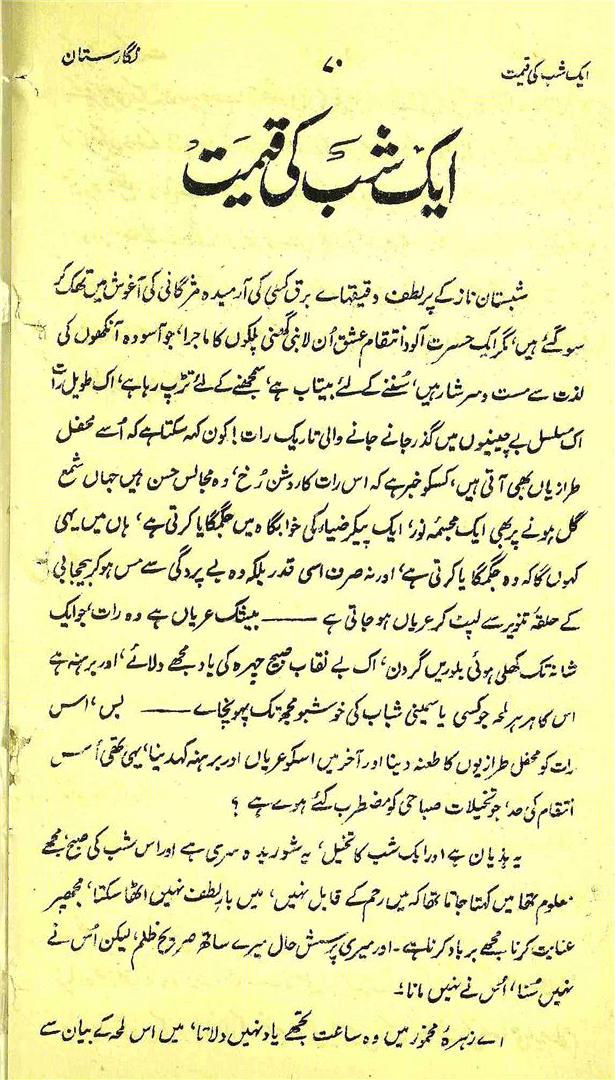 ایک شب کی قیمت ۷۰ نگارستان
ایک شب کی قیمت
شبستان ناز کے پر لطف دقیقہاے برق کسی کی آرمیدہ مژگانی کی آغوش میں تھک کر
سو گئے ہیں، مگر ایک حسرت آلود انتقام عشق اُن لانبی گھنی پلکوں کا ماجرا، جو آسودہ آنکھوں کی
لذت سے مست و سرشار ہیں، سُننے کے لئے بیتاب ہے، سمجھنے کے لئے تڑپ رہا ہے، اک طویل رات
اک مسلسل بے چینیوں میں گذر جانے جانے والی تاریک رات! کون کہہ سکتا ہے کہ اُسے محفل
طرازیاں بھی آتی ہیں، کسکو خبر ہے کہ اس رات کا روشن رُخ، وہ مجالس حسن ہیں جہاں شمع
گل ہونے پر بھی ایک مجسمۂ نور، ایک پیکر ضیاء کی خوابگاہ میں جگمگایا کرتی ہے، ہاں میں یہی
کہوں گا کہ وہ جگمگایا کرتی ہے، اور نہ صرف اسی قدر بلکہ وہ بے پردگی سے مس ہو کر بیحجابی
کے حلقۂ تنویر سے لپٹ کر عریاں ہو جاتی ہے —— بیشک عریاں ہے وہ رات، جو ایک
شانہ تک کھلی ہوئی بلوریں گردن، اک بے نقاب صبیح چہرہ کی یاد مجھے دلائے، اور برہنہ ہے
اس کا ہر ہر لمحہ جو کسی یاسمینی شباب کی خوشبو مجھ تک پہونچاے —— بس، اس
رات کو محفل طرازیوں کا طعنہ دینا اور آخر میں اسکو عریاں اور برہنہ کہدینا، یہی تھی اُس
انتقام کی حد، جو تخیلات صباحی کو مضطرب کئے ہوے ہے ؟
یہ ہذیان ہے اور ایک شب کا تخیل، یہ شوریدہ سری ہے اور اس شب کی صبح، مجھے
معلوم تھا میں کہتا جاتا تھا کہ میں رحم کے قابل نہیں، میں بار لطف نہیں اٹھا سکتا، مجھپر
عنایت کرنا مجھے برباد کرنا ہے۔ اور میری پرسش حال میرے ساتھ صریح ظلم، لیکن اُس نے
نہیں سُنا، اُس نے نہیں مانا۔
اے زہرۂ مخمور میں وہ ساعت تجھے یاد نہیں دلاتا، میں اس لمحہ کے بیان سے